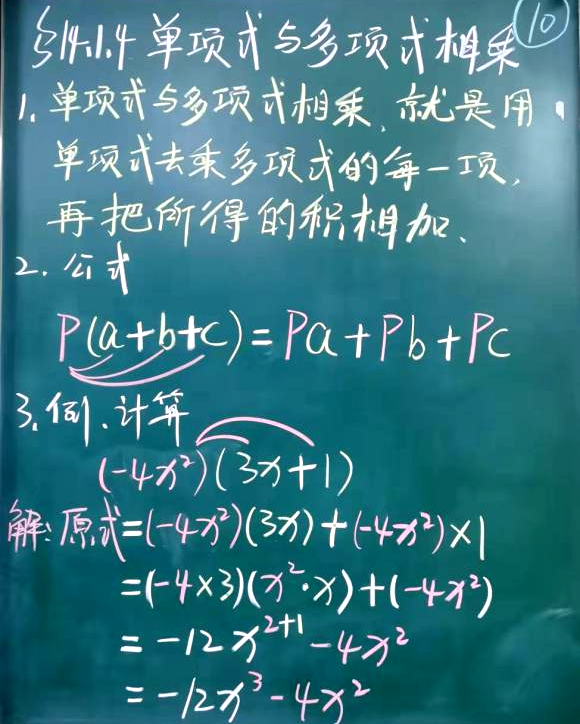 §14.1.4 单项式与多项式相乘 ⑩
1. 单项式与多项式相乘, 就是用
单项式去乘多项式的每一项,
再把所得的积相加、
2. 公式
P(a+b+c)=Pa+Pb+Pc
3. 例、计算
(-4x²)(3x+1)
解: 原式=(-4x²)(3x)+(-4x²)×1
=(-4×3)(x²·x)+(-4x²)
= -12x²⁺¹-4x²
= -12x³-4x²